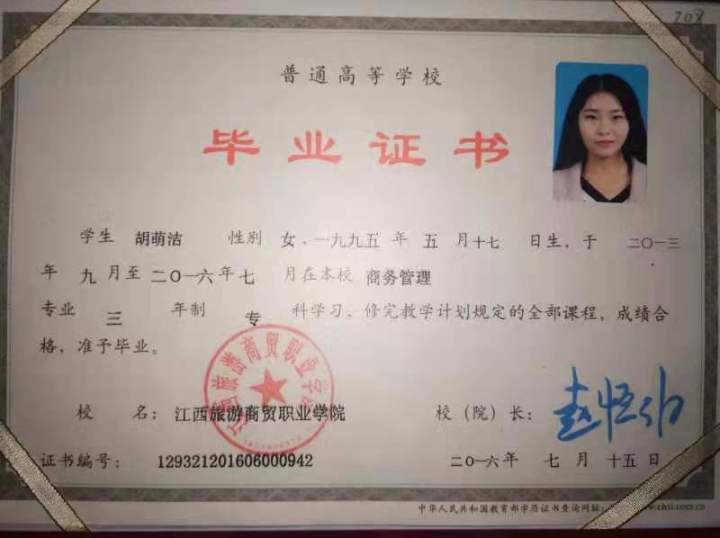 708
普通高等学校
毕业证书
学生 胡萌洁 性别 女，一九九五 年 五 月十七 日生，于 二〇一三
年 九 月至 二〇一六 年 七 月在本校 商务管理
专业 三 年制 专 科学习，修完教学计划规定的全部课程，成绩合
格，准予毕业。
江西旅游商贸职业学院
校 名： 江西旅游商贸职业学院 校（院）长：
证书编号： 129321201606000942 二〇一六 年 七 月 十五 日
中华人民共和国教育部学历证书查询网址：